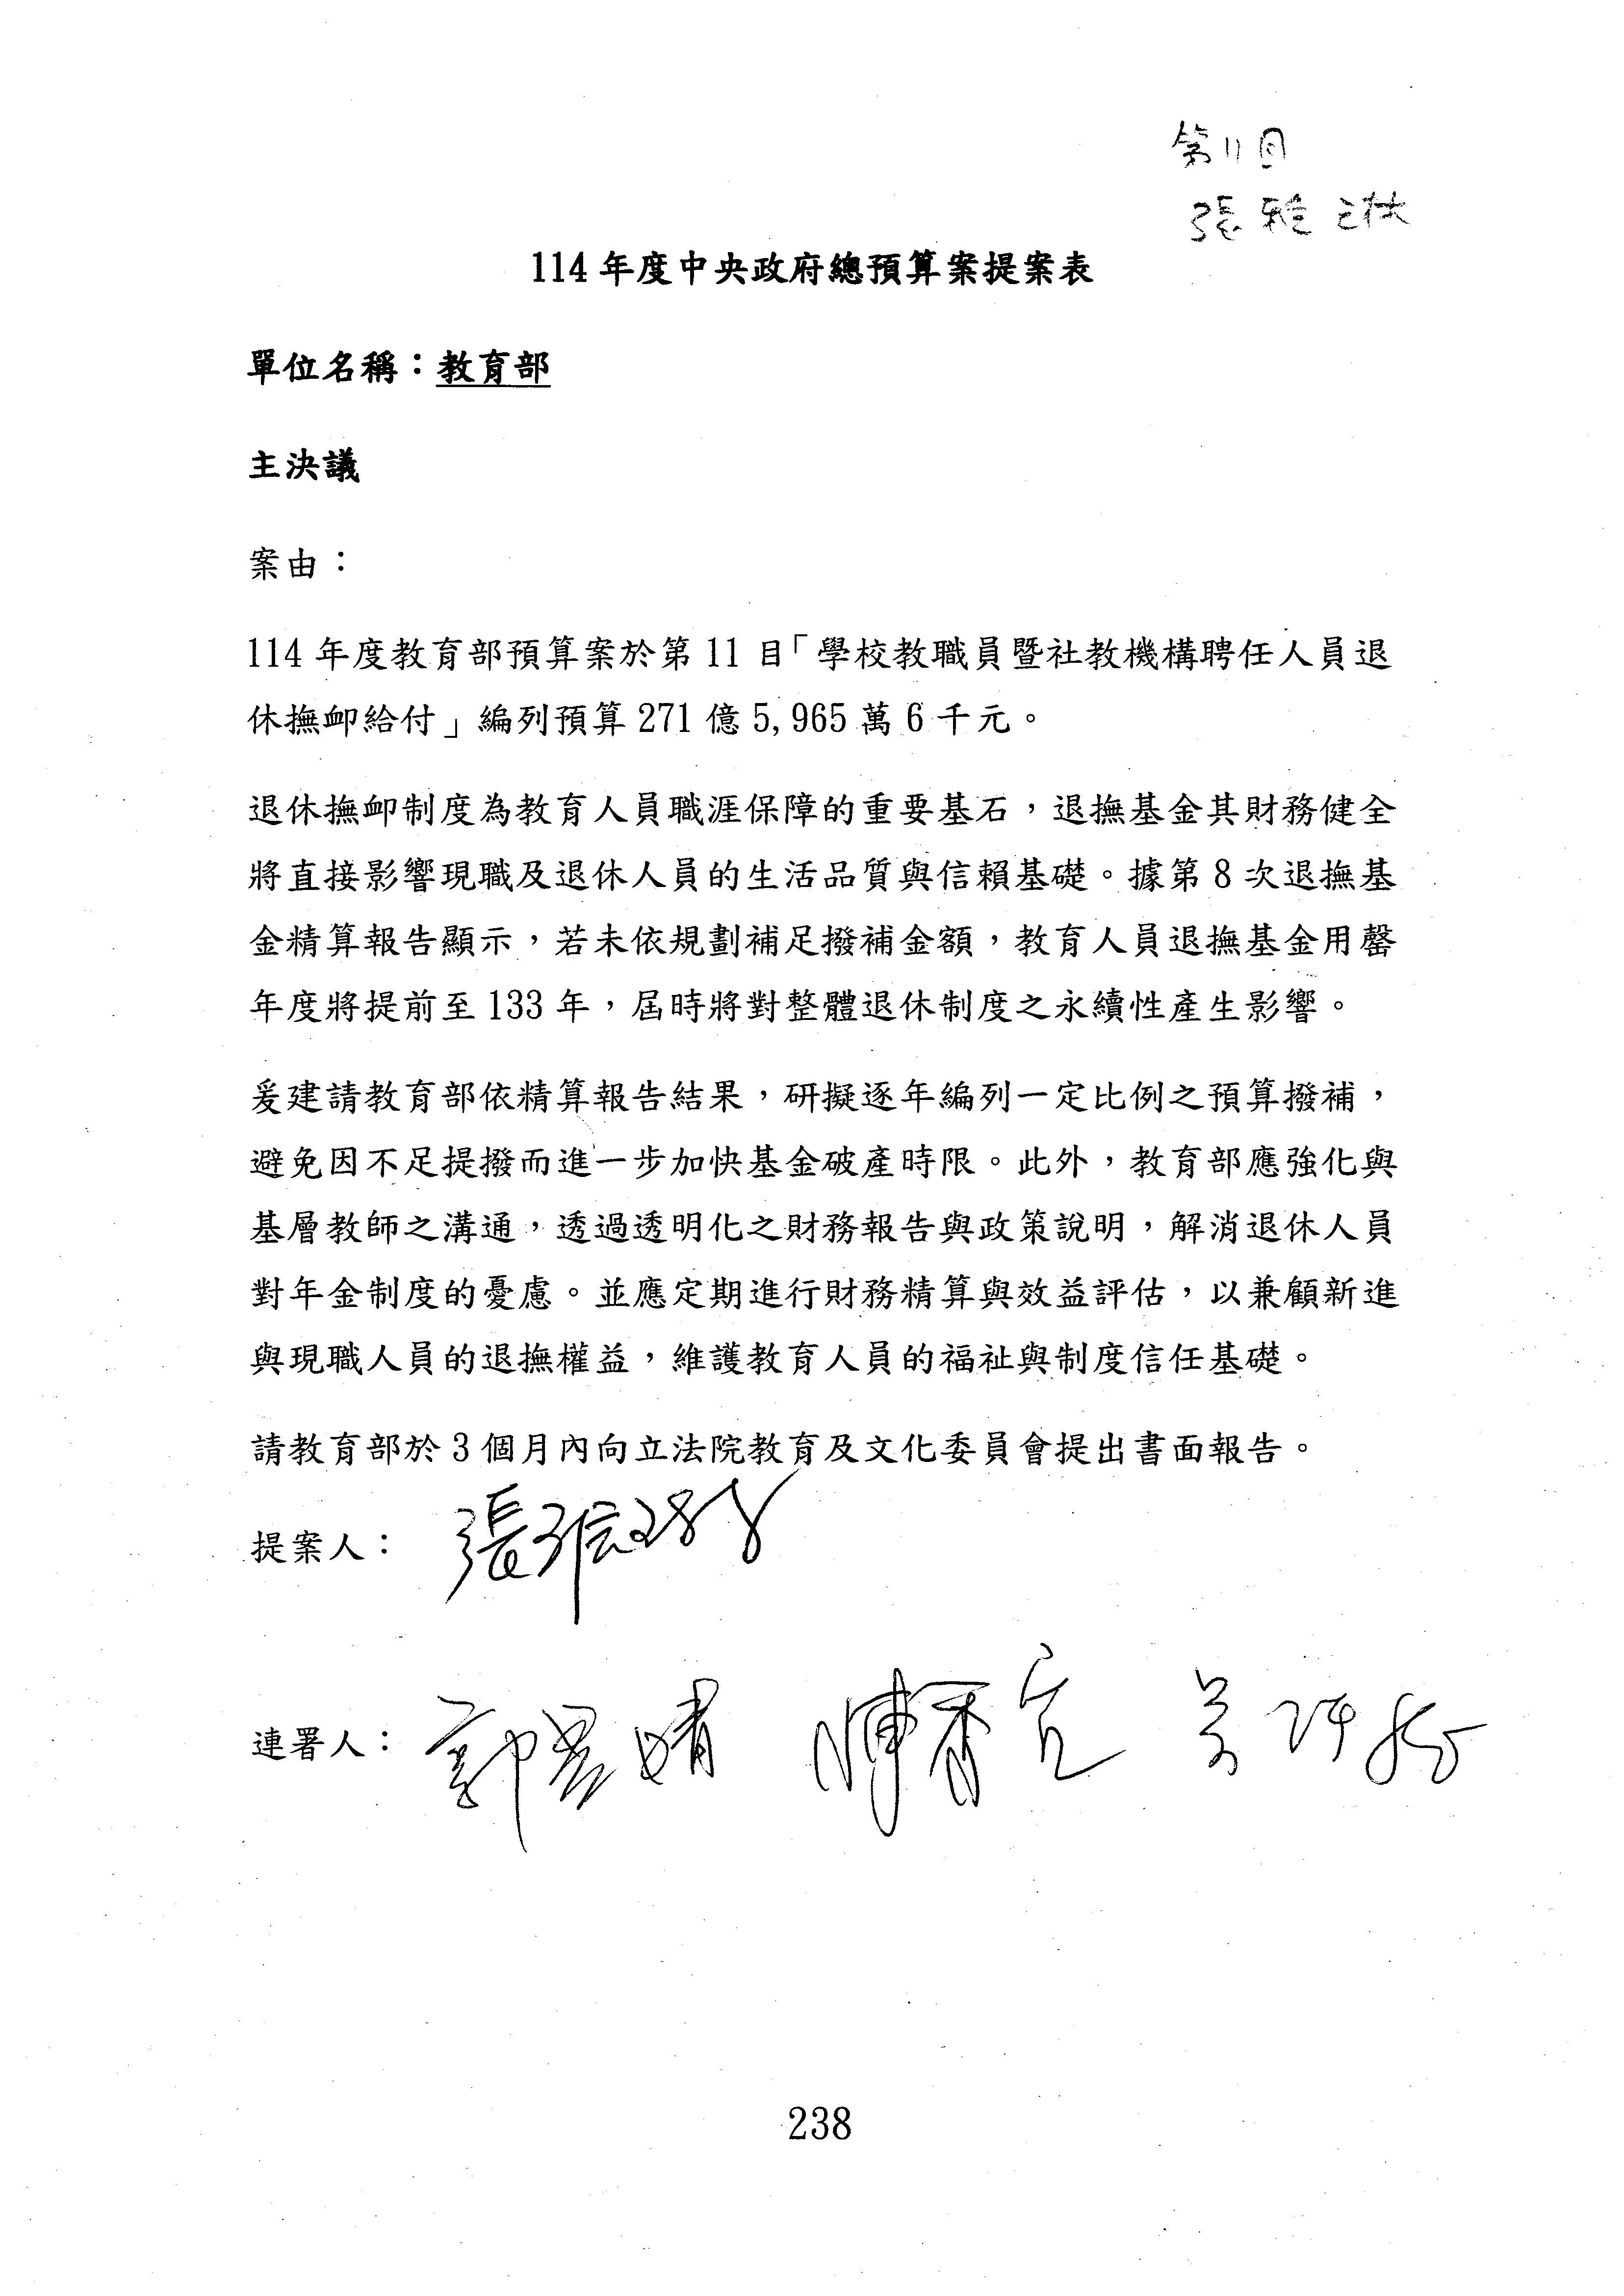 第11目
張雅琳
114年度中央政府總預算案提案表
單位名稱：教育部
主決議
案由：
114年度教育部預算案於第11目「學校教職員暨社教機構聘任人員退
休撫卹給付」編列預算271億5,965萬6千元。
退休撫卹制度為教育人員職涯保障的重要基石，退撫基金其財務健全
將直接影響現職及退休人員的生活品質與信賴基礎。據第8次退撫基
金精算報告顯示，若未依規劃補足撥補金額，教育人員退撫基金用罄
年度將提前至133年，屆時將對整體退休制度之永續性產生影響。
爰建請教育部依精算報告結果，研擬逐年編列一定比例之預算撥補，
避免因不足提撥而進一步加快基金破產時限。此外，教育部應強化與
基層教師之溝通，透過透明化之財務報告與政策說明，解消退休人員
對年金制度的憂慮。並應定期進行財務精算與效益評估，以兼顧新進
與現職人員的退撫權益，維護教育人員的福祉與制度信任基礎。
請教育部於3個月內向立法院教育及文化委員會提出書面報告。
提案人：張雅琳
連署人：
238